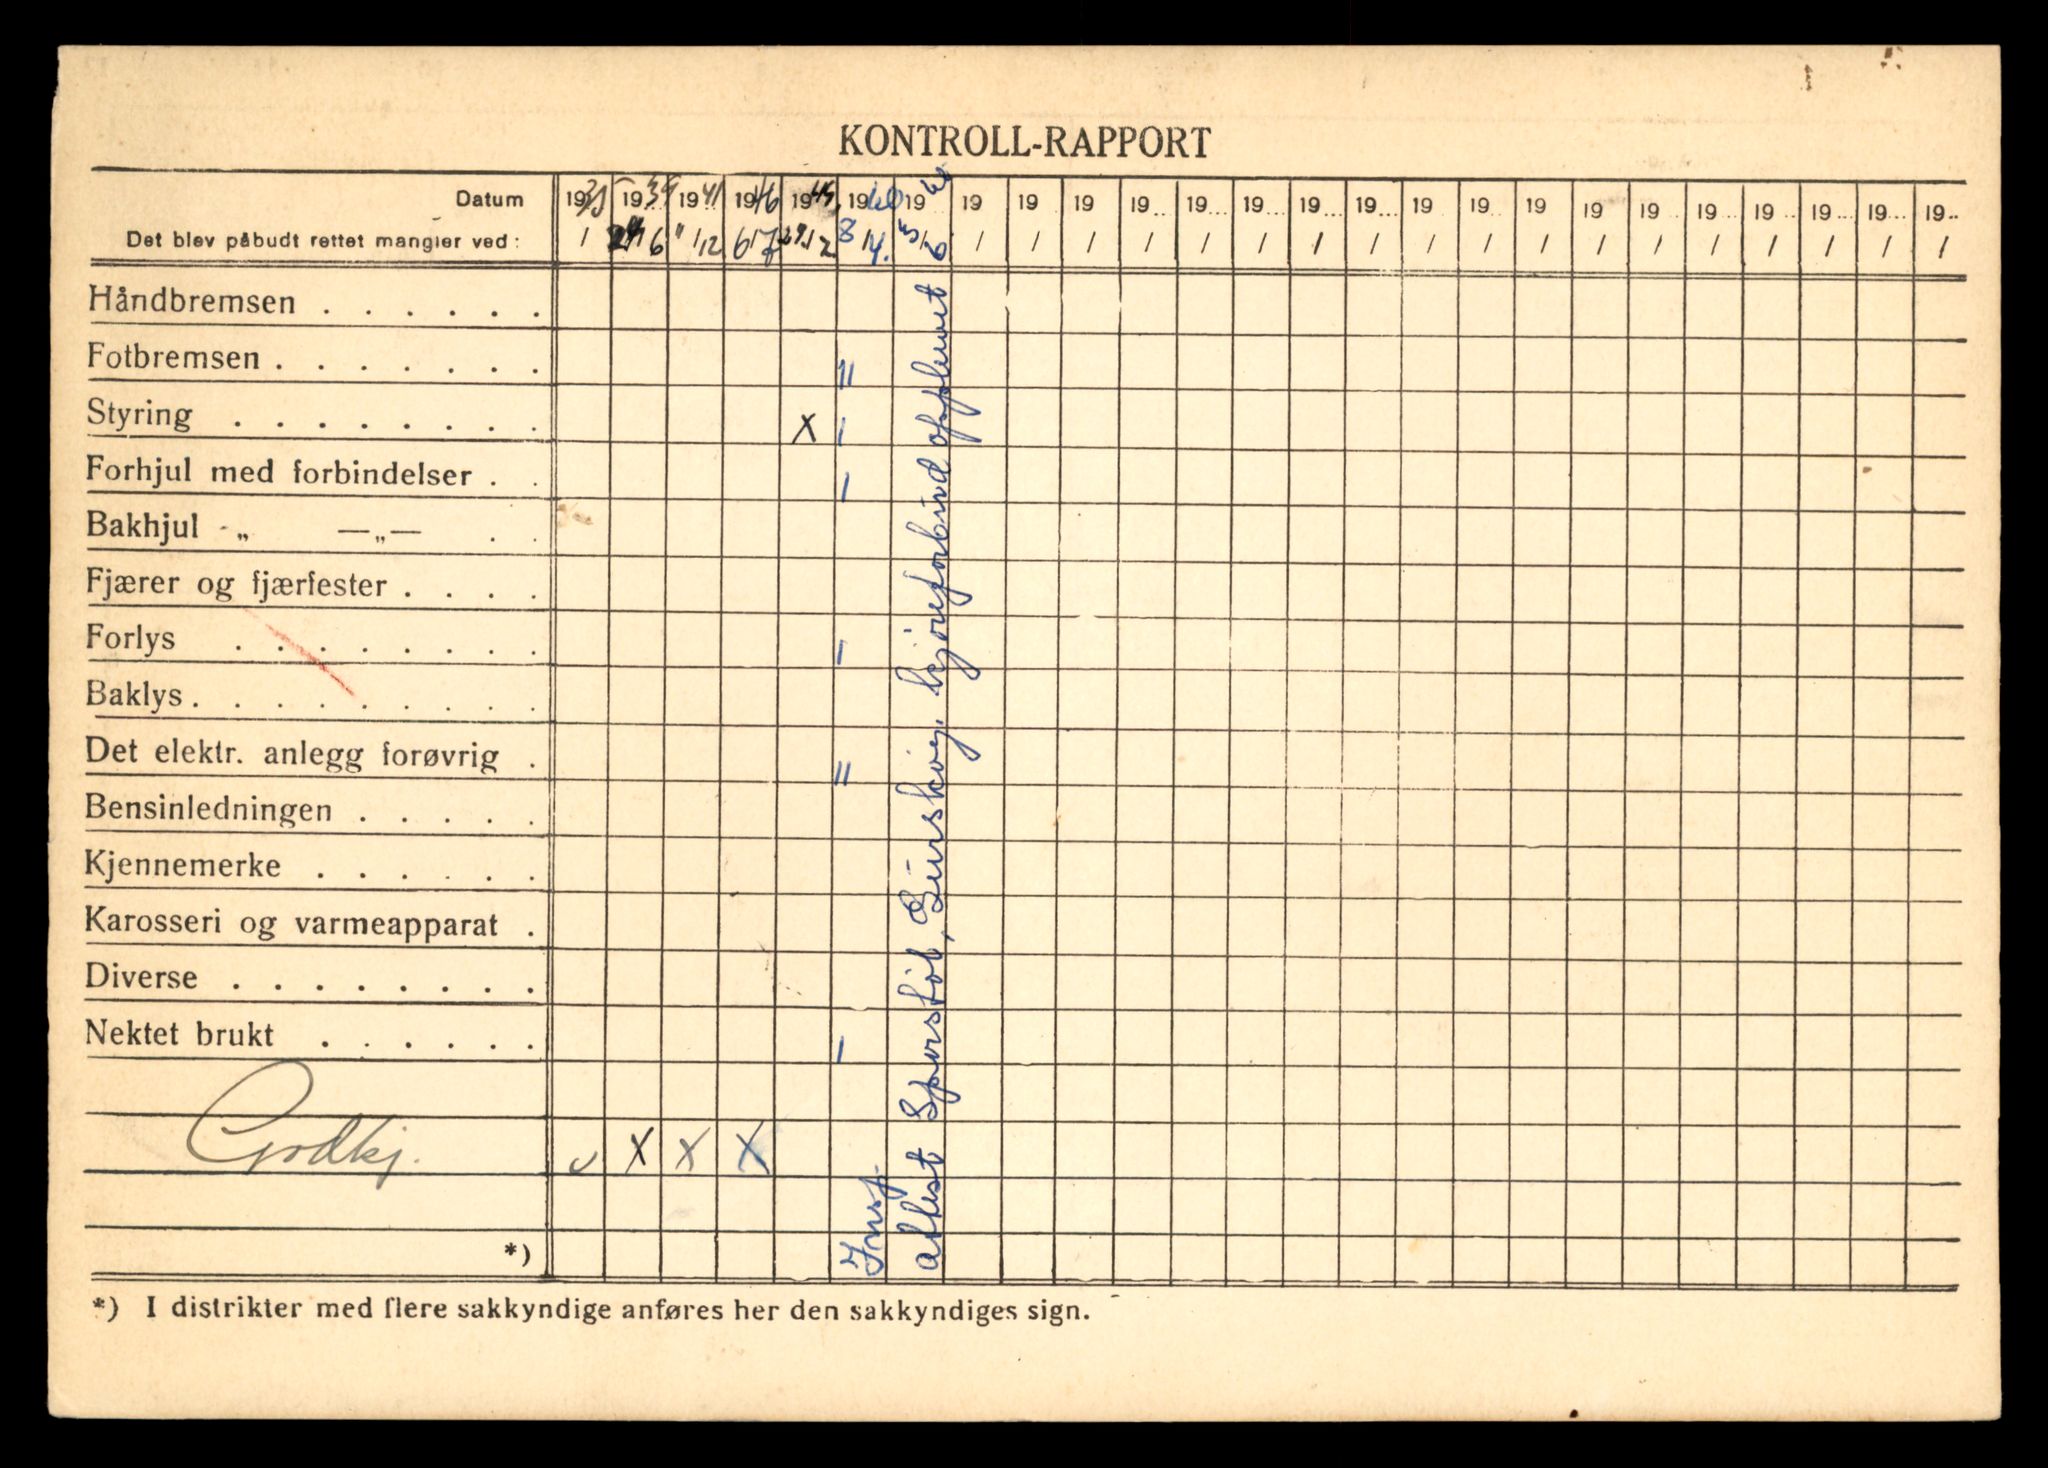 KONTROLL-RAPPORT
Datum 19 1939 1941 1946 1949 1960 19 19 19 19 19... 19... 19... 19... 19... 19 19 19 19 19 19... 19 19... 19... 19..
Det blev påbudt rettet mangler ved: / 6 " 1/12 6/7 29/12 8/4. / / / / / / / / / / / / / / / / / / /
Håndbremsen . . . . . .
Fotbremsen . . . . . . . II
Styring . . . . . . . . X I
Forhjul med forbindelser . . I
Bakhjul - „ —„— . .
Fjærer og fjærfester . . . .
Forlys . . . . . . . . I
Baklys . . . . . . . . .
Det elektr. anlegg forøvrig . II
Bensinledningen . . . . .
Kjennemerke . . . . . .
Karosseri og varmeapparat .
Diverse . . . . . . . .
Nektet brukt . . . . . . I
Godkj. X X X
*)
attest Sporstøl, Gurskøy, kjøreforbud opphevet
*) I distrikter med flere sakkyndige anføres her den sakkyndiges sign.